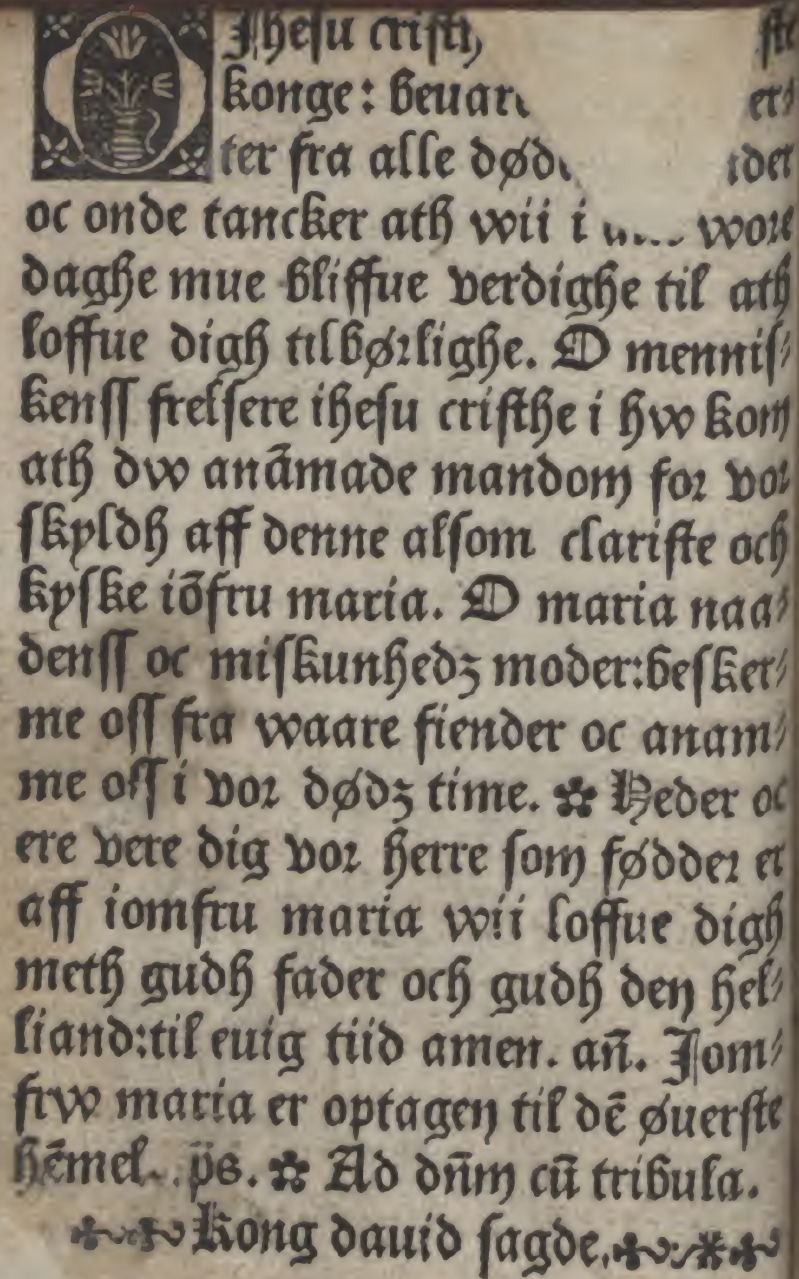 O Jhesu cristi, ste
konge: bevar er⸗
ter fra alle død det
oc onde tancker ath wii i wore
daghe mue bliffue verdighe til ath
loffue digh tilbørlighe. O mennis⸗
kenss frelsere ihesu cristhe i hw kom
ath dw anāmade mandom for vor
skyldh aff denne alsom clariste och
kyske iōfru maria. O maria naa⸗
denss oc miskunhedz moder:besker⸗
me oss fra waare fiender oc anam⸗
me oss i vor dødz time. ✿ Heder oc
ere vere dig vor herre som fødder er
aff iomfru maria wii loffue digh
meth gudh fader och gudh den hel⸗
liand:til euig tiid amen. an̄. Jom⸗
frw maria er optagen til dē øuerste
hēmel. p̄s. ✿ Ad dn̄m cū tribula.
Kong dauid sagde.